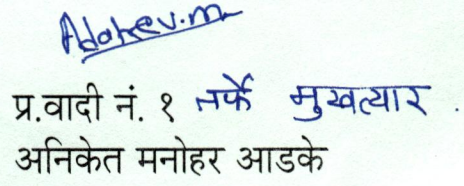 Adokev.m
प्र.वादी नं. १ तर्फे मुखत्यार .
अनिकेत मनोहर आडके